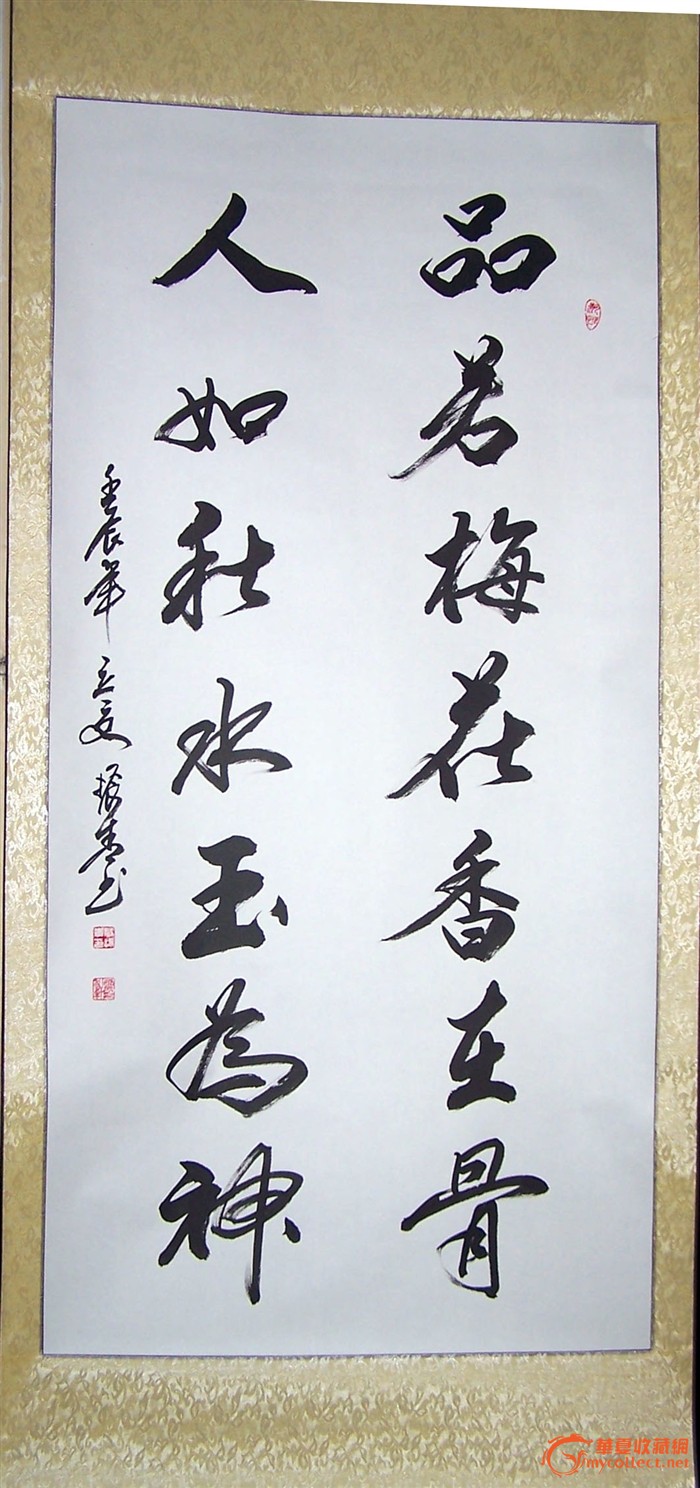 品若梅花香在骨
人如秋水玉为神
壬辰年立夏振来书
華夏收藏網
mycollect.net